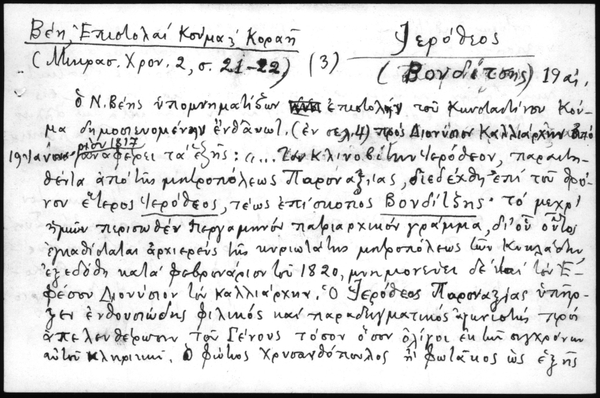 Βέη, Ἐπιστολαί Κούμα, Κοραῆ
Ἱερόθεος
(Μικρασ. Χρον. 2, σ. 21-22) (3) (Βονδίτσης) 19 αἰ.
ὁ Ν. Βέης ὑπομνηματίζων ἐπιστολήν τοῦ Κωνσταντίνου Κού-
μα δημοσιευομένην ἐνθάνωτ. (ἐν σελ. 4) πρός Διονύσιον Καλλιάρχην ἀπό
19 Ἰανουαρίου 1817 ἀναφέρει τά ἑξῆς: «... Τόν Κλινοβίτην Ἱερόθεον, παραιτη-
θέντα ἀπό τῆς μητροπόλεως Παροναξίας, διεδέχθη ἐπί τοῦ θρό-
νου ἕτερος Ἱερόθεος, τέως ἐπίσκοπος Βονδίτζης· τό μεχρι
ἡμῶν περισωθέν περγαμηνόν πατριαρχικόν γράμμα, δι' οὗ οὗτος
ἐγκαθίσταται ἀρχιερεύς τῆς κυριωτάτης μητροπόλεως τῶν Κυκλάδων
ἐξεδόθη κατά φεβρουάριον τοῦ 1820, μνημονεύει δέ καί τόν Ἐ-
φέσου Διονύσιον τόν Καλλιάρχην. Ὁ Ἱερόθεος Παροναξίας ὑπῆρ-
ξεν ἐνθουσιώδης φιλικός καί παραδειγματικός ἀγωνιστής πρός
ἀπελευθέρωσιν τοῦ Γένους τόσον ὅσον ὀλίγοι ἐκ τῶν συγχρόνων
αὐτοῦ κληρικοί. Ὁ Φώτιος Χρυσανθόπουλος ἤ Φωτάκος ὡς ἑξῆς